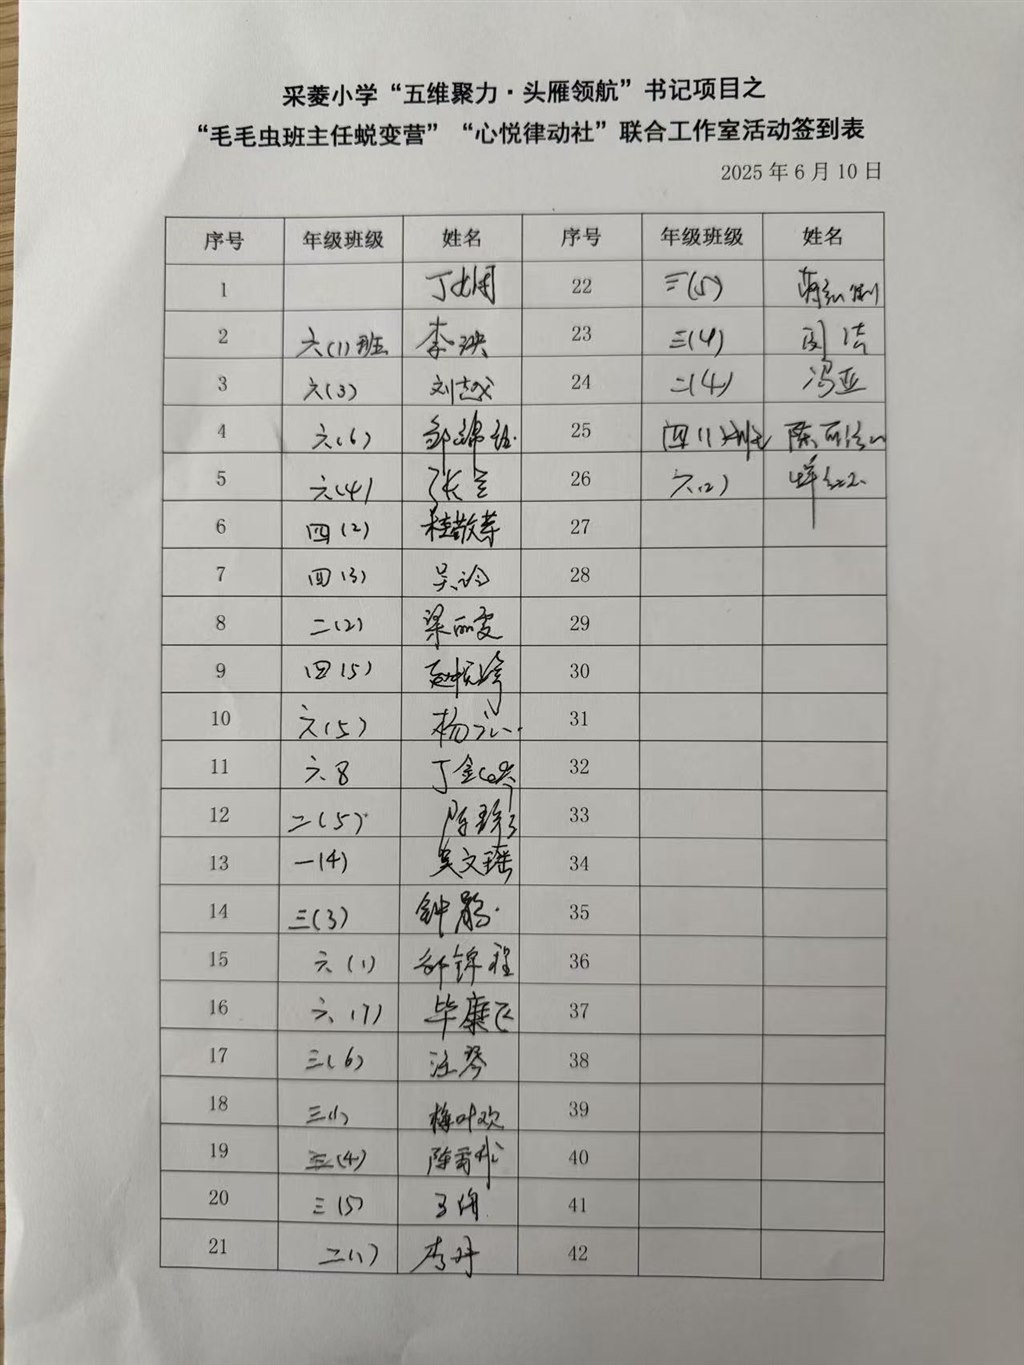 采菱小学“五维聚力·头雁领航”书记项目之
“毛毛虫班主任蜕变营” “心悦律动社”联合工作室活动签到表
2025年6月10日
序号 年级班级 姓名 序号 年级班级 姓名
1 22 三(5)
2 六(1)班 李映 23 三(4) 周洁
3 六(3) 24 二(4) 冯亚
4 六(6) 邹锦 25 四(1)班 陈丽
5 六(4) 张 26 六(2)
6 四(2) 桂敬 27
7 四(3) 吴 28
8 二(2) 梁丽雯 29
9 四(5) 30
10 六(5) 杨 31
11 六8 丁金 32
12 二(5) 陈 33
13 一(4) 吴文瑶 34
14 三(3) 钟 35
15 六(1) 锦程 36
16 六(7) 毕康 37
17 三(6) 汪琴 38
18 三(1) 梅叶欢 39
19 三(4) 陈 40
20 三(5) 41
21 二(1) 李丹 42